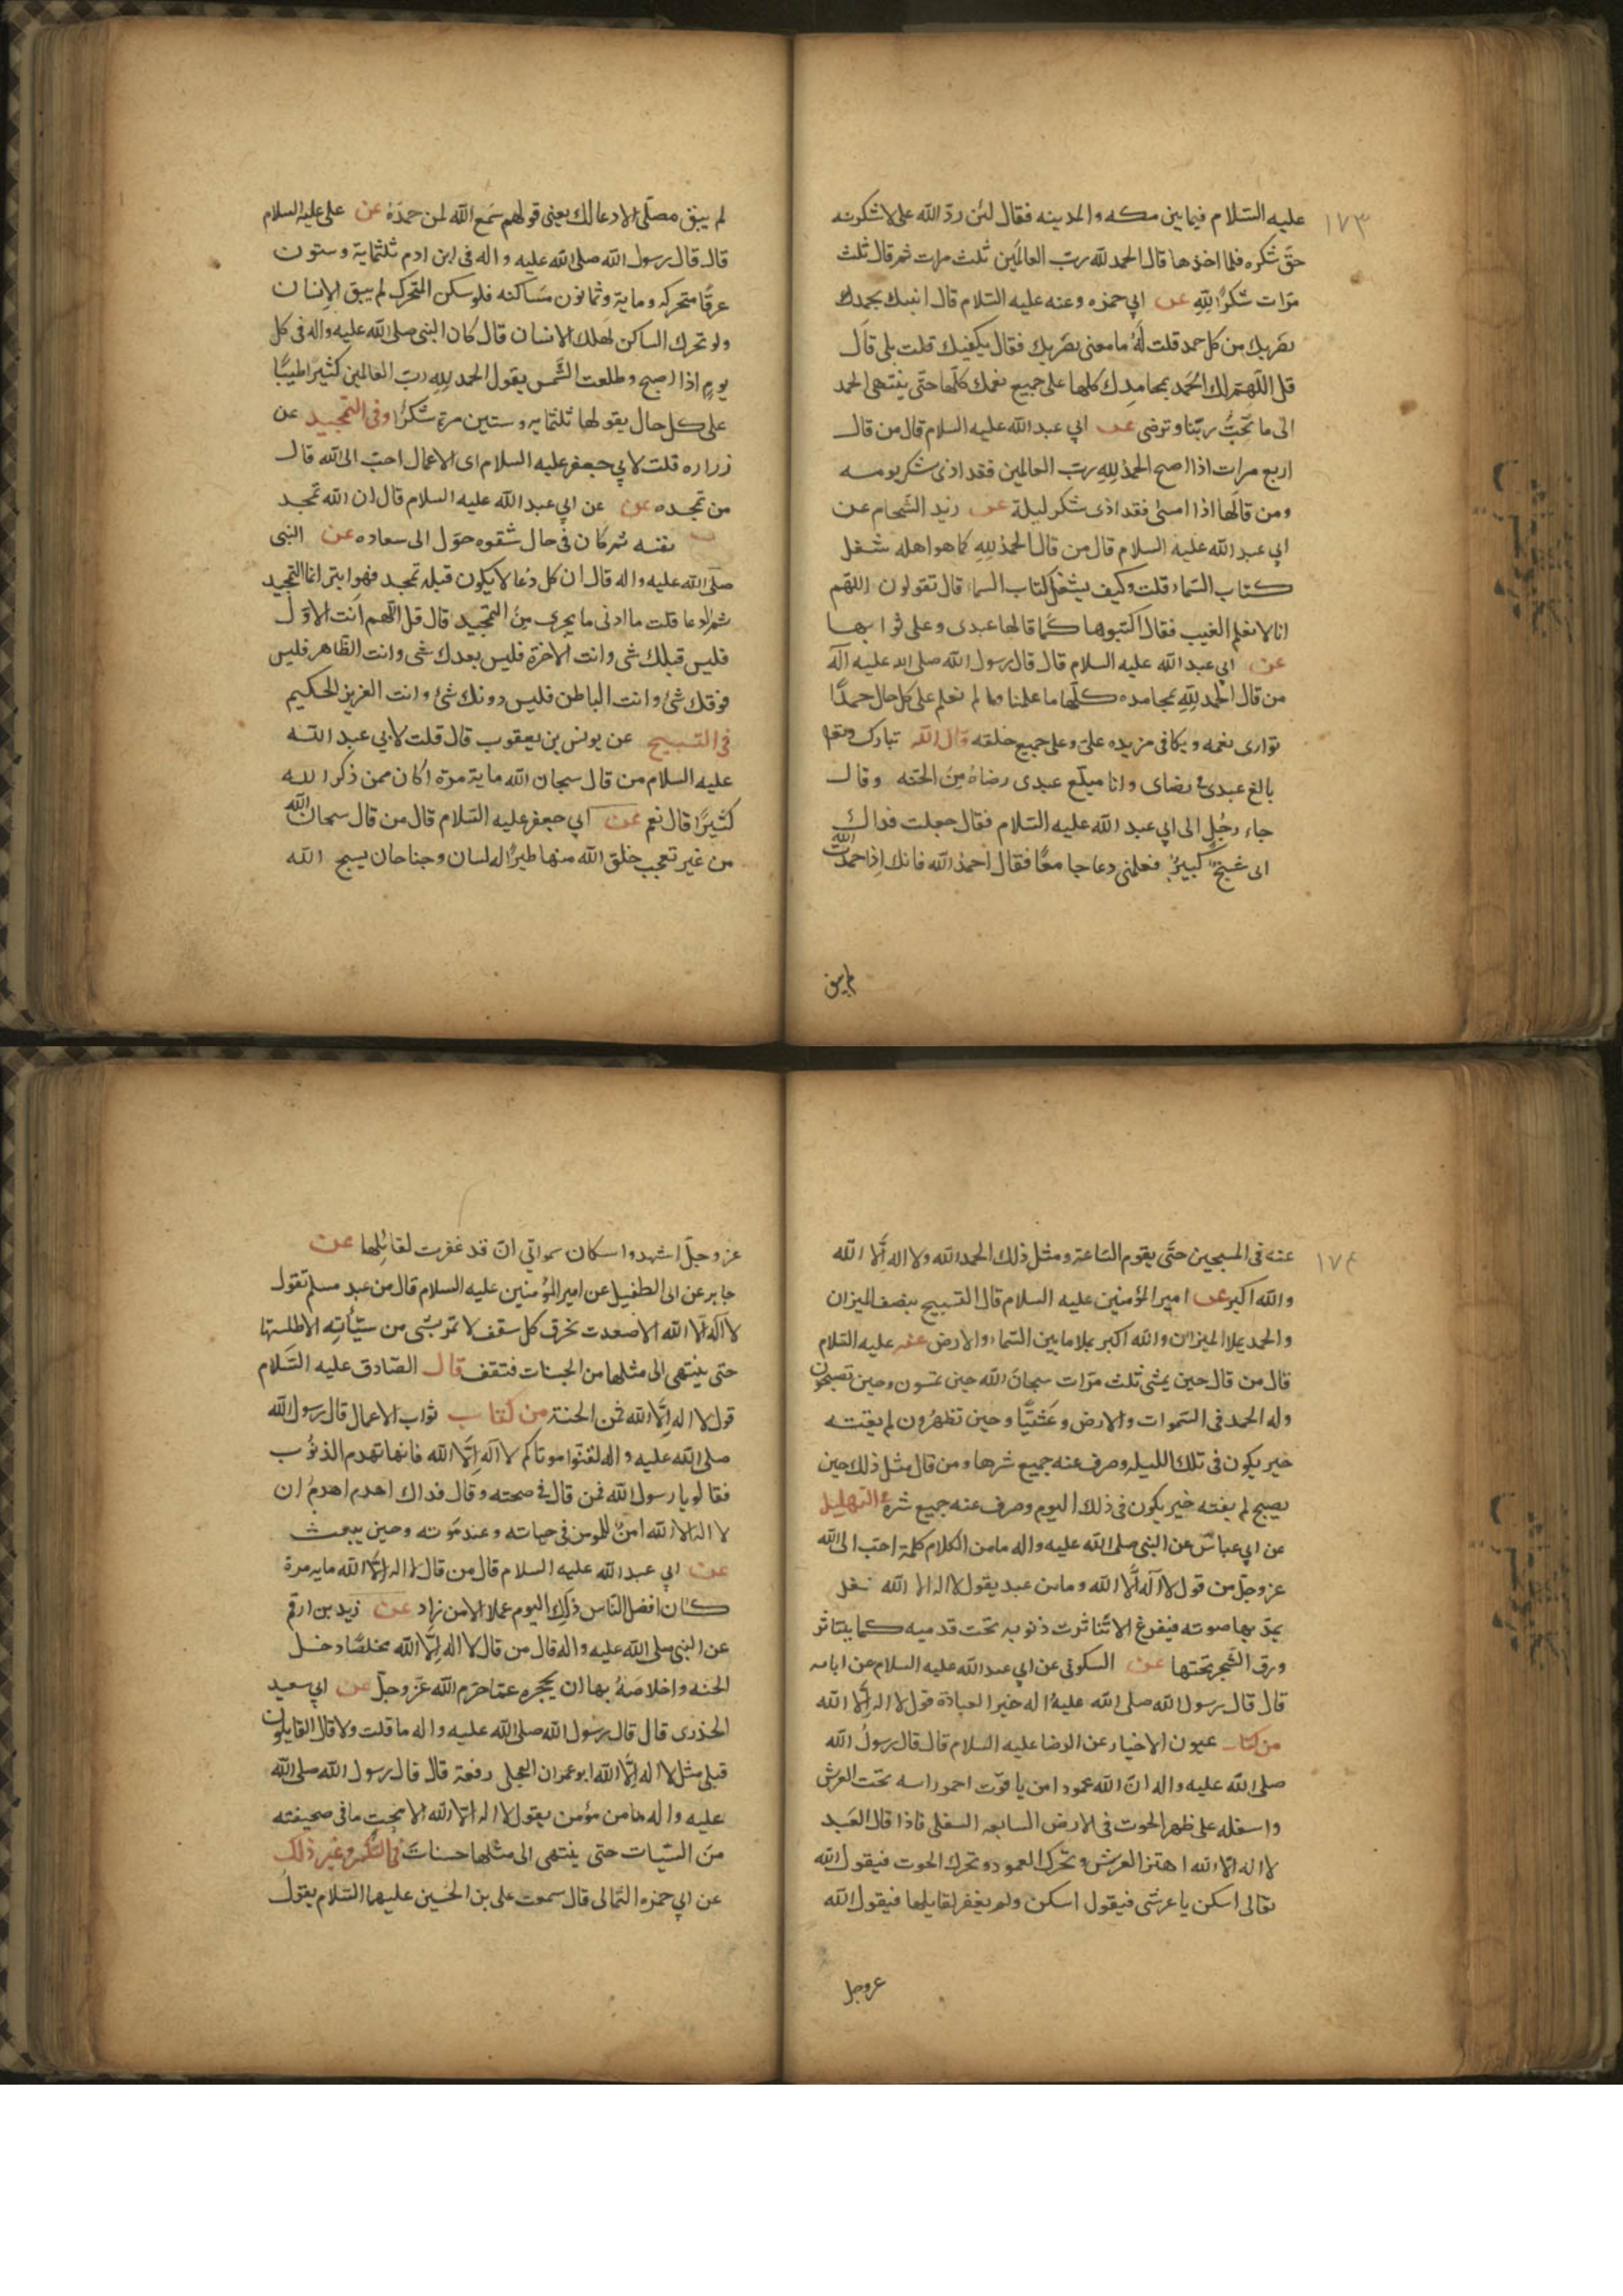 ١٧٣
عليه السّلام فيما بين مكه والمدينه فقال لئن ردّ الله على لاشكرنه
حقّ شكره فلما اخذها قال الحمد لله ربّ العالمَين ثلث مرات ثم قال ثلث
مرّات شكرًا لِلّهِ عن ابي حمزه وعنه عليه السّلام قال انبيك بحمدك
يضربك من كل حمد قلت لَهُ ما معنى يضربك فقال يكفيك قلت بلى قال
قل اللّهمّ لك الحَمد بمحامدِك كلها على جميع نعمك كلّها حتّى ينتهى الحمد
الى ما تحِبُّ ربّنا وترضى عن ابي عبد الله عليه السلام قال من قال
اربع مرات اذا اصبح الحمدُ لِلهِ ربّ العالمين فقد ادى شكر يومه
ومن قالَها اذا امسى فقد ادى شكر ليلة عن زيد الشّحام عن
ابي عبد الله عليه السلام قال من قال الحمدُ لِلهِ كما هو اهله شغل
كتاب السّماء قلت وكيف يشغل كتاب السماء قال تقولون اللهّم
انا لا نعلم الغيب فقال اكتبوها كَما قالها عبدى وعلى ثوابها
عن ابي عبد الله عليه السلام قال قال رسول الله صلى الله عليه آله
من قال الحمد لِلّهِ بمحامده كلّها ما علمنا وما لم نعلم على كل حال حمدًا
توارى نعمه ويكافى مزيده علىّ وعلى جميع خلقه قال الله تبارك وتعا
بالغ عبدى رضاى وانا مبلّغ عبدى رضاهُ مِنَ الجنه وقال
جاء رجُلٍ الى ابي عبد الله عليه السّلام فقال جعلت فداك
انى شيخ كبيرٌ فعلمنى دعا جامعًا فقال احمدُ الله فانك اِذا حمدت الله
لم يبق
لم يبق مصلّى الا دعا لك يعنى قولهم سَمع الله لمن حمدَهُ عن على عليه السلام
قال قال رسول الله صلى الله عليه واله فى ابن ادم ثلثماية وستون
عرقًا متحركه وماية وثمانون مسَاكنه فلو سكن المتحرك لم يبق الاِنسان
ولو تحرك الساكن لهلك الانسان قال كان النبى صلى الله عليه واله فى كل
يومٍ اذا اصبح وطلعت الشّمس يقول الحمد لِلهِ ربّ العالمين كثيرًا طيبًا
على كل حال يقولها ثلثمايه وستين مرة شكرًا وفى التمجيد عن
زراره قلت لابي جعفر عليه السلام اى الاعمال احبّ الى الله قال
من تمجده عن عن ابي عبد الله عليه السلام قال ان الله تمجد
نفسه ثم كان فى حال شقوه حوّل الى سعاده عن النبى
صلّى الله عليه واله قال ان كل دُعا لا يكون قبله تمجد فهو ابتر انما التمجيد
ثم الدعا قلت ما ادنى ما يجرى مِنَ التمجيد قال قل اللّهم انت الاوّل
فليس قبلك شى وانت الاخرة فليس بعدك شى وانت الظاهر فليس
فوقك شئ وانت الباطن فليس دونك شئ وانت العزيز الحكيم
فى التسبيح عن يونس بن يعقوب قال قلت لابي عبد الله
عليه السلام من قال سبحان الله ماية مرة اكان ممن ذكر الله
كثيرًا قال نعم عن ابي جعفر عليه السّلام قال من قال سبحان الله
من غير تعجب خلق الله منها طيرًا له لسان وجناحان يسبح الله
١٧٤
عنه فى المسبحين حتّى يقوم السّاعة ومثل ذلك الحمد الله ولا اله إلّا الله
والله اكبر عن امير المؤمنين عليه السلام قال التسبيح بنصف الميزان
والحمد يملا الميزان والله اكبر يملا ما بين السّماء والارض عنه عليه السّلام
قال من قال حين يمشى ثلث مرّات سبحانَ الله حين تمسون وحين تصبحون
وله الحمد فى السّموات والارض وعَشيًّا وحين تظهرُون لم يفته
خير يكون فى تلك الليله وصرف عنه جميع شرها ومن قال مثل ذلك حين
يصبح لم يفته خير يكون فى ذلك اليوم وصرف عنه جميع شره التهليل
عن ابي عباسٍ عن النبى صلى الله عليه واله ما من الكلام كلمة احبّ الى الله
عز وجلّ من قول لا آله اِلّا الله وما من عبد يقول لا اله الا الله
يمدّ بها صوته فيفرغ الا تناثرت ذنوبه تحت قدميه كما يتناثر
ورق الشّجر تحتها عن السكونى عن ابي عبد الله عليه السلام عن ابائه
قال قال رسول الله صلى الله عليهُ اله خير العبادة قول لا اله اِلّا الله
من كتاب عيون الاخبار عن الرضا عليه السلام قال قال رسولُ الله
صلى الله عليه واله انّ الله عمودا من ياقوت احمر راسه تحت العرش
واسفله على ظهر الحوت فى الارض السابعه السفلى فاذا قال العَبد
لا اله الا الله اهتز العرش وتحرك العمود وتحرك الحوت فيقول الله
تعالى اسكن يا عرشى فيقول اسكن ولم يغفر لقايلها فيقول الله
عز وجل
عز وجلّ اشهدوا سكان سمواتي انّ قد غفرت لقائلِها عن
جابر عن ابى الطفيل عن امير المؤمنين عليه السلام قال من عبد مسلم تقول
لا آله الا الله الا صعدت تخرق كل سقف لا تمر بشى من سيّأتِه الا طلستها
حتى ينتهى الى مثلها من الحسنات فتقف قال الصّادق عليه السّلام
قول لا اله اِلّا الله ثمن الجنة من كتاب ثواب الاعمال قال رسول الله
صلى الله عليه واله لقنّوا موتاكم لا آله اِلّا الله فانها تهدم الذنُوب
فقالو يا رسول الله فمن قال فى صحته وقال فداك اهدم اهدم ان
لا اله الا الله امنٌ للمومن فى حياته وعند مَوته وحين يبعث
عن ابي عبد الله عليه السلام قال من قال لا اله اِلّا الله مايه مرة
كان افضل النّاس ذلِك اليوم عملا الا من زاد عن زيد بن ارقم
عن النبى صلى الله عليه واله قال من قال لا اله اِلّا الله مخلصًا دخل
الجنه واخلاصَهُ بها ان يحجره عمّا حرّم الله عزّ وجلّ عن ابي سعيد
الخدرى قال قال رسُول الله صلى الله عليه واله ما قلت ولا قال القايلون
قبلى مثل لا اله اِلّا الله ابو عمران العجلى رفعة قال قال رسول الله صلى الله
عليه واله ما من مؤمن يقول لا اله الا الله الا محيت ما فى صحيفته
منَ السّيات حتى ينتهى الى مثلها حسناتَ فى الذّكر وغير ذلك
عن ابي حمزه الثمالى قال سمعت على بن الحُسين عليهما السّلام يقولُ